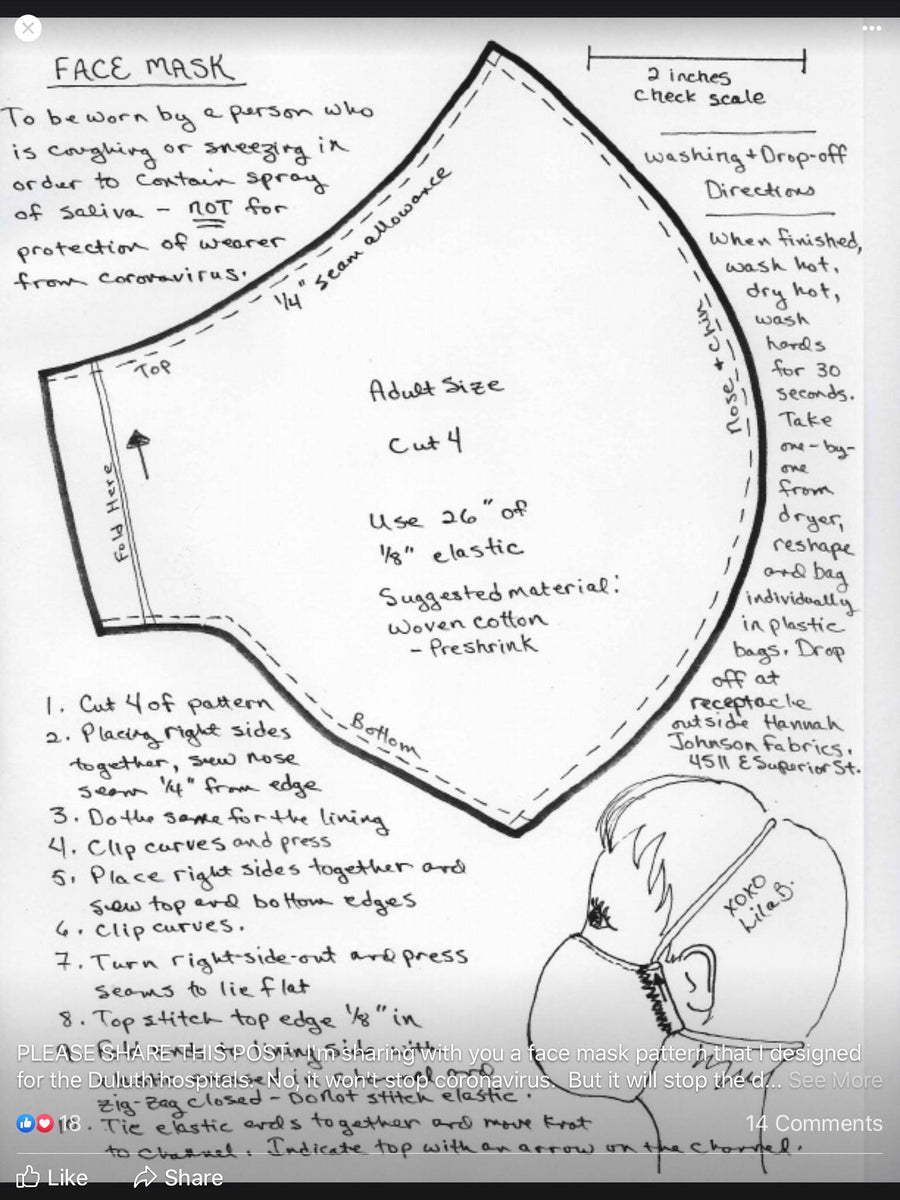 FACE MASK
To be worn by a person who
is coughing or sneezing in
order to contain spray
of saliva - NOT for
protection of wearer
from coronavirus.
2 inches
check scale
washing + Drop-off
Directions
When finished,
wash hot,
dry hot,
wash
hands
for 30
seconds.
Take
one-by-
one
from
dryer,
reshape
and bag
individually
in plastic
bags. Drop
off at
receptacle
outside Hannah
Johnson Fabrics.
4511 E Superior St.
1/4" seam allowance
Top
Fold Here
Nose + Chin
Adult Size
Cut 4
Use 26" of
1/8" elastic
Suggested material:
Woven cotton
- Preshrink
Bottom
1. Cut 4 of pattern
2. Placing right sides
together, sew nose
seam 1/4" from edge
3. Do the same for the lining
4. Clip curves and press
5. Place right sides together and
sew top and bottom edges
6. Clip curves.
7. Turn right-side-out and press
seams to lie flat
8. Top stitch top edge 1/8" in
9. Fold ends to lining side with
elastic
zig-zag closed - Do not stitch elastic.
10. Tie elastic ends together and move knot
to channel. Indicate top with an arrow on the channel.
XOXO
Lila B.
PLEASE SHARE THIS POST: I'm sharing with you a face mask pattern that I designed
for the Duluth hospitals. No, it won't stop coronavirus. But it will stop the d... See More
18
14 Comments
Like
Share